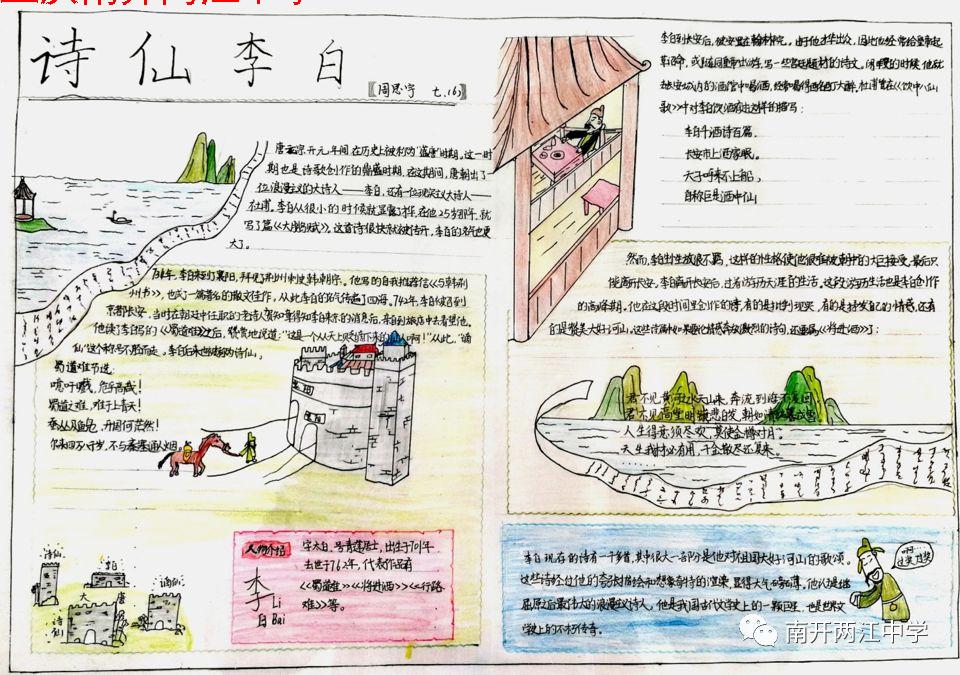 诗仙李白
周思宇 七.(6)
唐玄宗开元年间,在历史上被称为"盛唐"时期。这一时
期也是诗歌创作的鼎盛时期。在这期间,唐朝出了
一位浪漫主义的大诗人——李白,还有一位现实主义大诗人——
杜甫。李白从很小的时候就显露才华,在他25岁那年,就
写了篇《大鹏赋》。这首诗很快就被传开,李白的名气也更
大了。
李白来到了襄阳,拜见了荆州刺史韩朝宗。他写的自我推荐信《与韩荆
州书》,也成了一篇著名的散文佳作,从此李白的名气传遍了四海。742年,李白
京都长安,当时在朝廷中任职的老诗人贺知章得知李白来京的消息后,亲自到旅店中去看望他。
他读了李白写的《蜀道难》之后,赞赏地说道:"这是一个从天上贬谪下来的仙人啊!"从此,"谪
仙"这个称号不胫而走。李白后来也被称为诗仙。
蜀道难节选:
噫吁嚱,危乎高哉!
蜀道之难,难于上青天!
蚕丛及鱼凫,开国何茫然!
尔来四万八千岁,不与秦塞通人烟。
诗仙
李白
诗仙
大唐
诗仙
人物介绍
李白
Li
Bai
字太白,号青莲居士,出生于701年,
去世于762年,代表作品有
《蜀道难》《将进酒》《行路
难》等。
李白到长安后,被安置在翰林院。由于他才华出众,因此他经常给皇帝起
草诏命,或随同皇帝出游,写一些宫廷题材的诗文。闲暇的时候,他就
去长安城内的酒馆中喝酒,经常喝得酩酊大醉。杜甫曾在《饮中八仙
歌》中对李白饮酒有这样的描写:
李白斗酒诗百篇,
长安市上酒家眠。
天子呼来不上船,
自称臣是酒中仙
然而,李白一生放浪不羁,这样的性格使他很难被朝中的大臣接受。最后只
能离开长安。李白离开长安后,过着游历天涯的生活。这段游历生活也是李白创作
的高峰期。他在这段时间里创作的诗,有的是抨击现实,有的是抒发自己的情感,还有
的是赞美大好河山。这些诗
君不见黄河之水天上来,奔流到海不复回。
君不见高堂明镜悲白发,朝如青丝暮成雪。
人生得意须尽欢,莫使金樽对月。
天生我材必有用,千金散尽还复来。
李白现存的诗有一千多首,其中很大一部分是他对祖国大好河山的歌颂。
这些诗经过他的夸张描绘和想象奇特的渲染,显得大气磅礴。他认是继
屈原之后最伟大的浪漫主义诗人。他是我国古代文学史上的一颗巨星,也是世界文
学上的不朽传奇。
南开两江中学